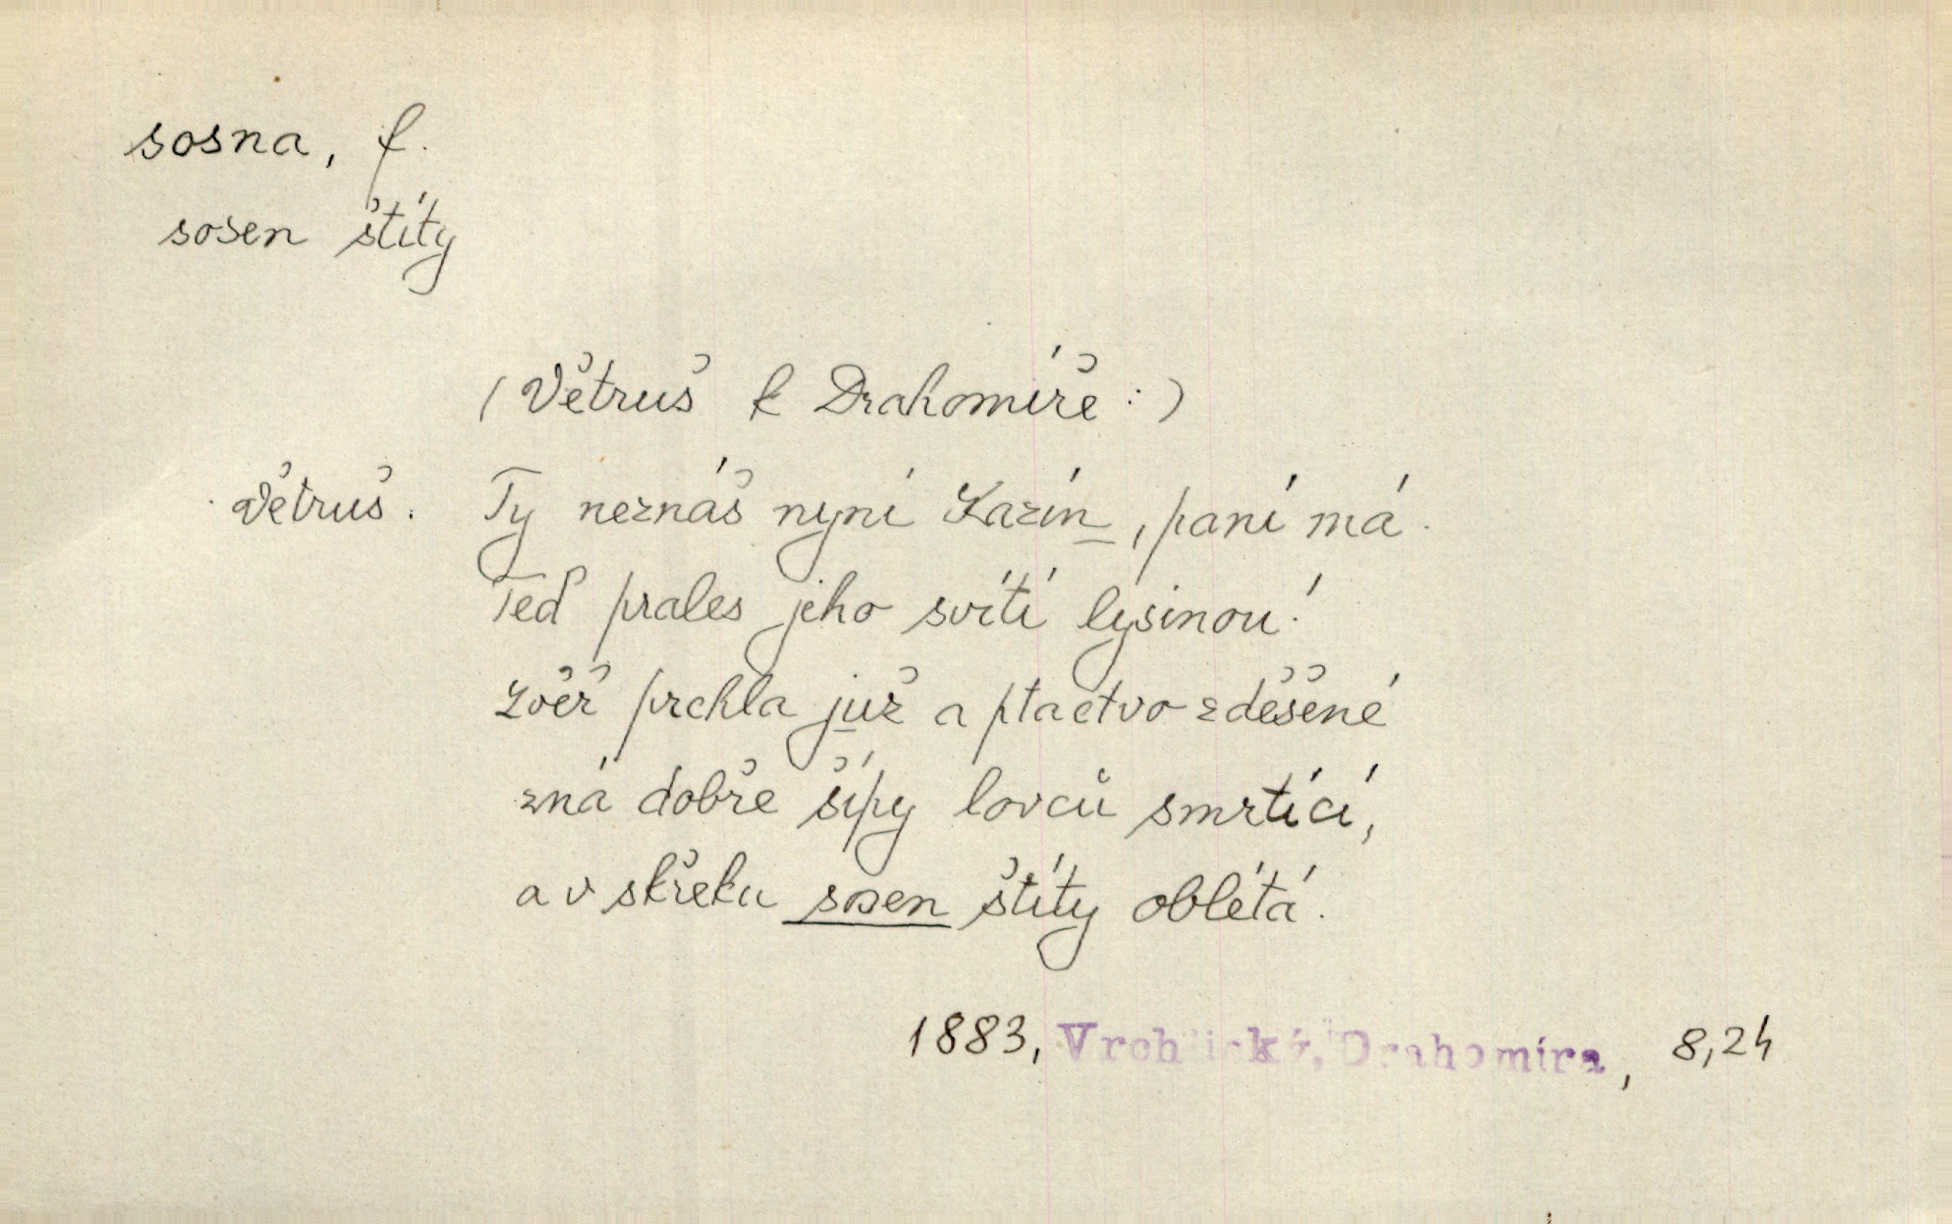 sosna, f.
sosen štíty
(Větruš k Drahomíře:)
Větruš. Ty neznáš nyní Kazín, paní má.
Teď prales jeho svítí lysinou!
Zvěř prchla juž a ptactvo zděšené
zná dobře šípy lovců smrtící,
a v skřeku sosen štíty oblétá.
1883, Vrchlický, Drahomíra, 8,24